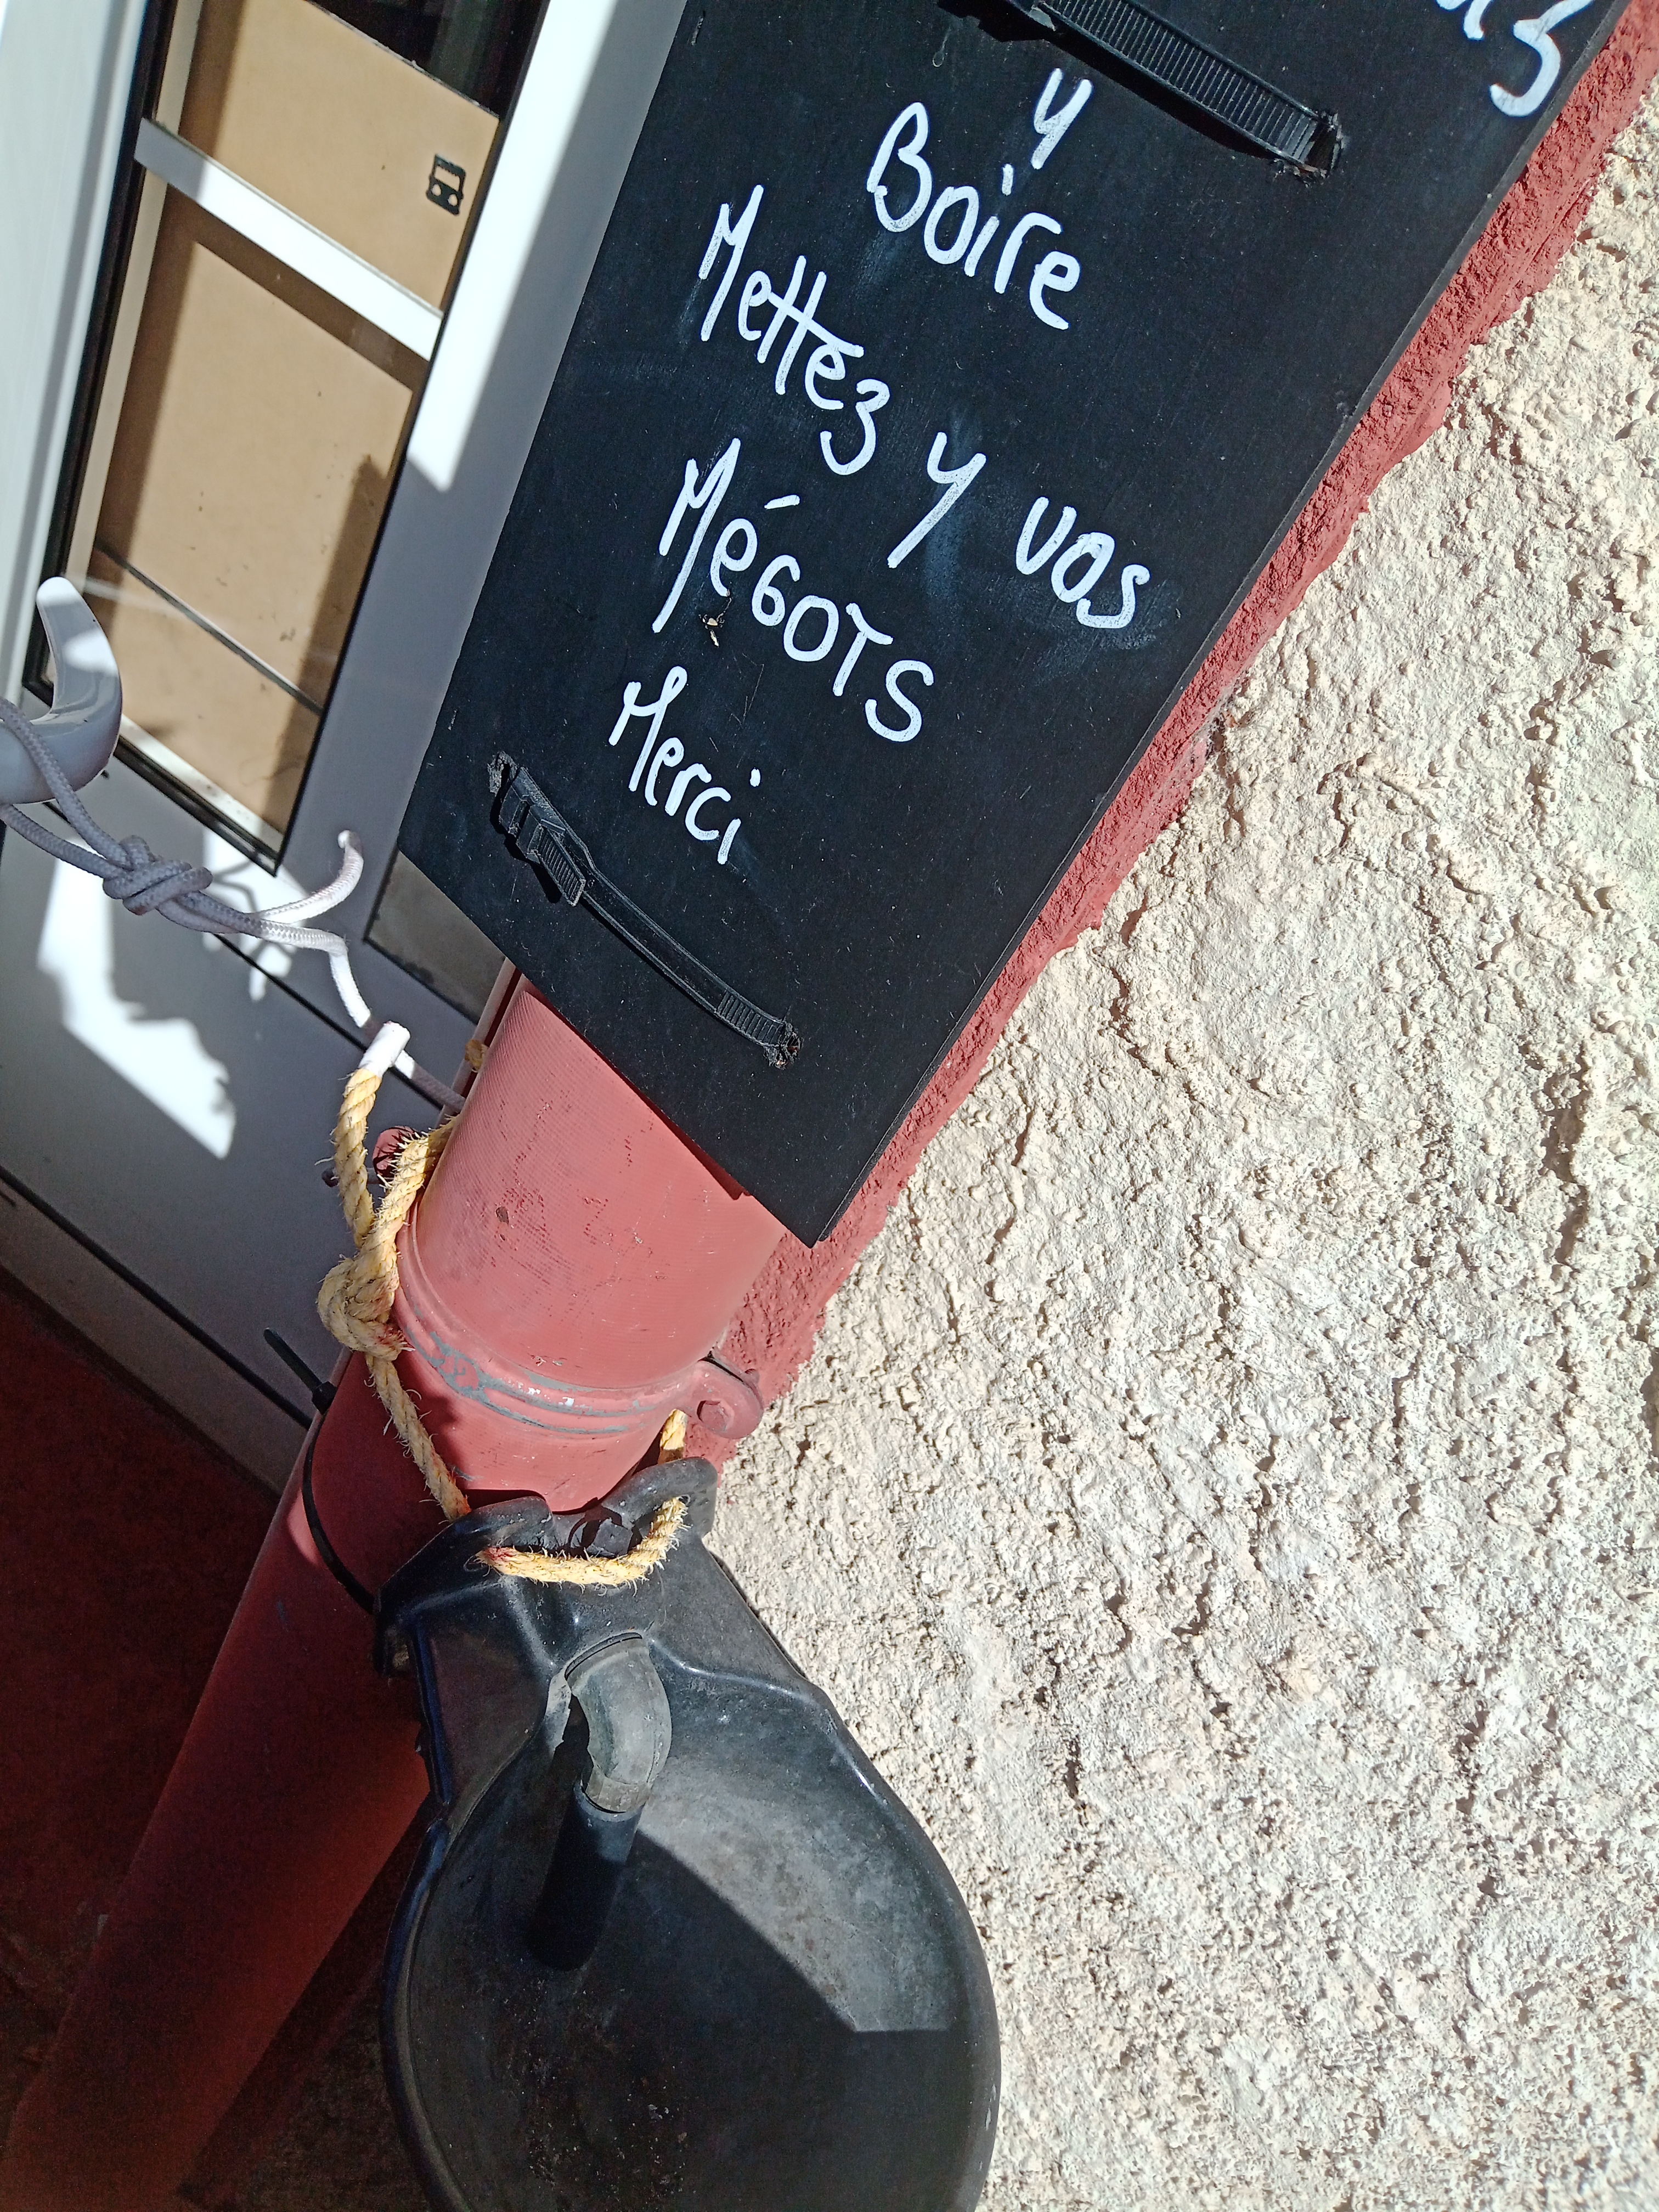 y
Boire
Mettez y vos
MéGOTS
Merci